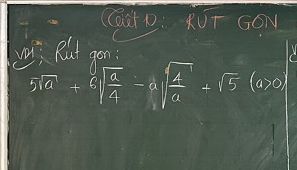 Tiết 10: RÚT GỌN
VD1: Rút gọn:
5√a + 6√(a/4) - a√(4/a) + √5 (a>0)